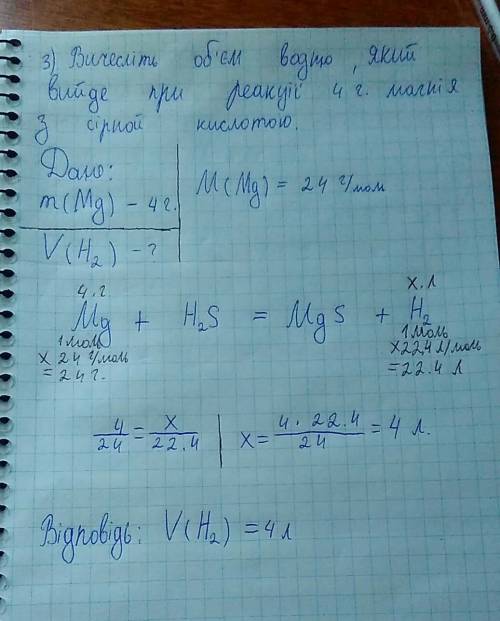 3) Вичесліть об'єм водню, який
вийде при реакції 4 г. магнія
з сірной кислотою.
Дано:
m(Mg) – 4 г.
M(Mg) = 24 г/мол
V(H₂) – ?
4. г
x. л
Mg + H₂S = MgS + H₂
1 моль
1 моль
x 24 г/моль
x22,4 л/моль
= 24 г.
= 22.4 л
4/24 = x/22.4 | x = 4 · 22.4/24 = 4 л.
Відповідь: V(H₂) = 4 л